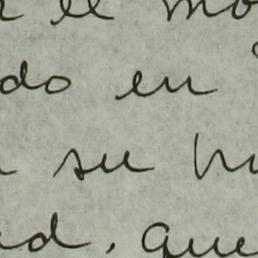 el mo
do en
su
d, que